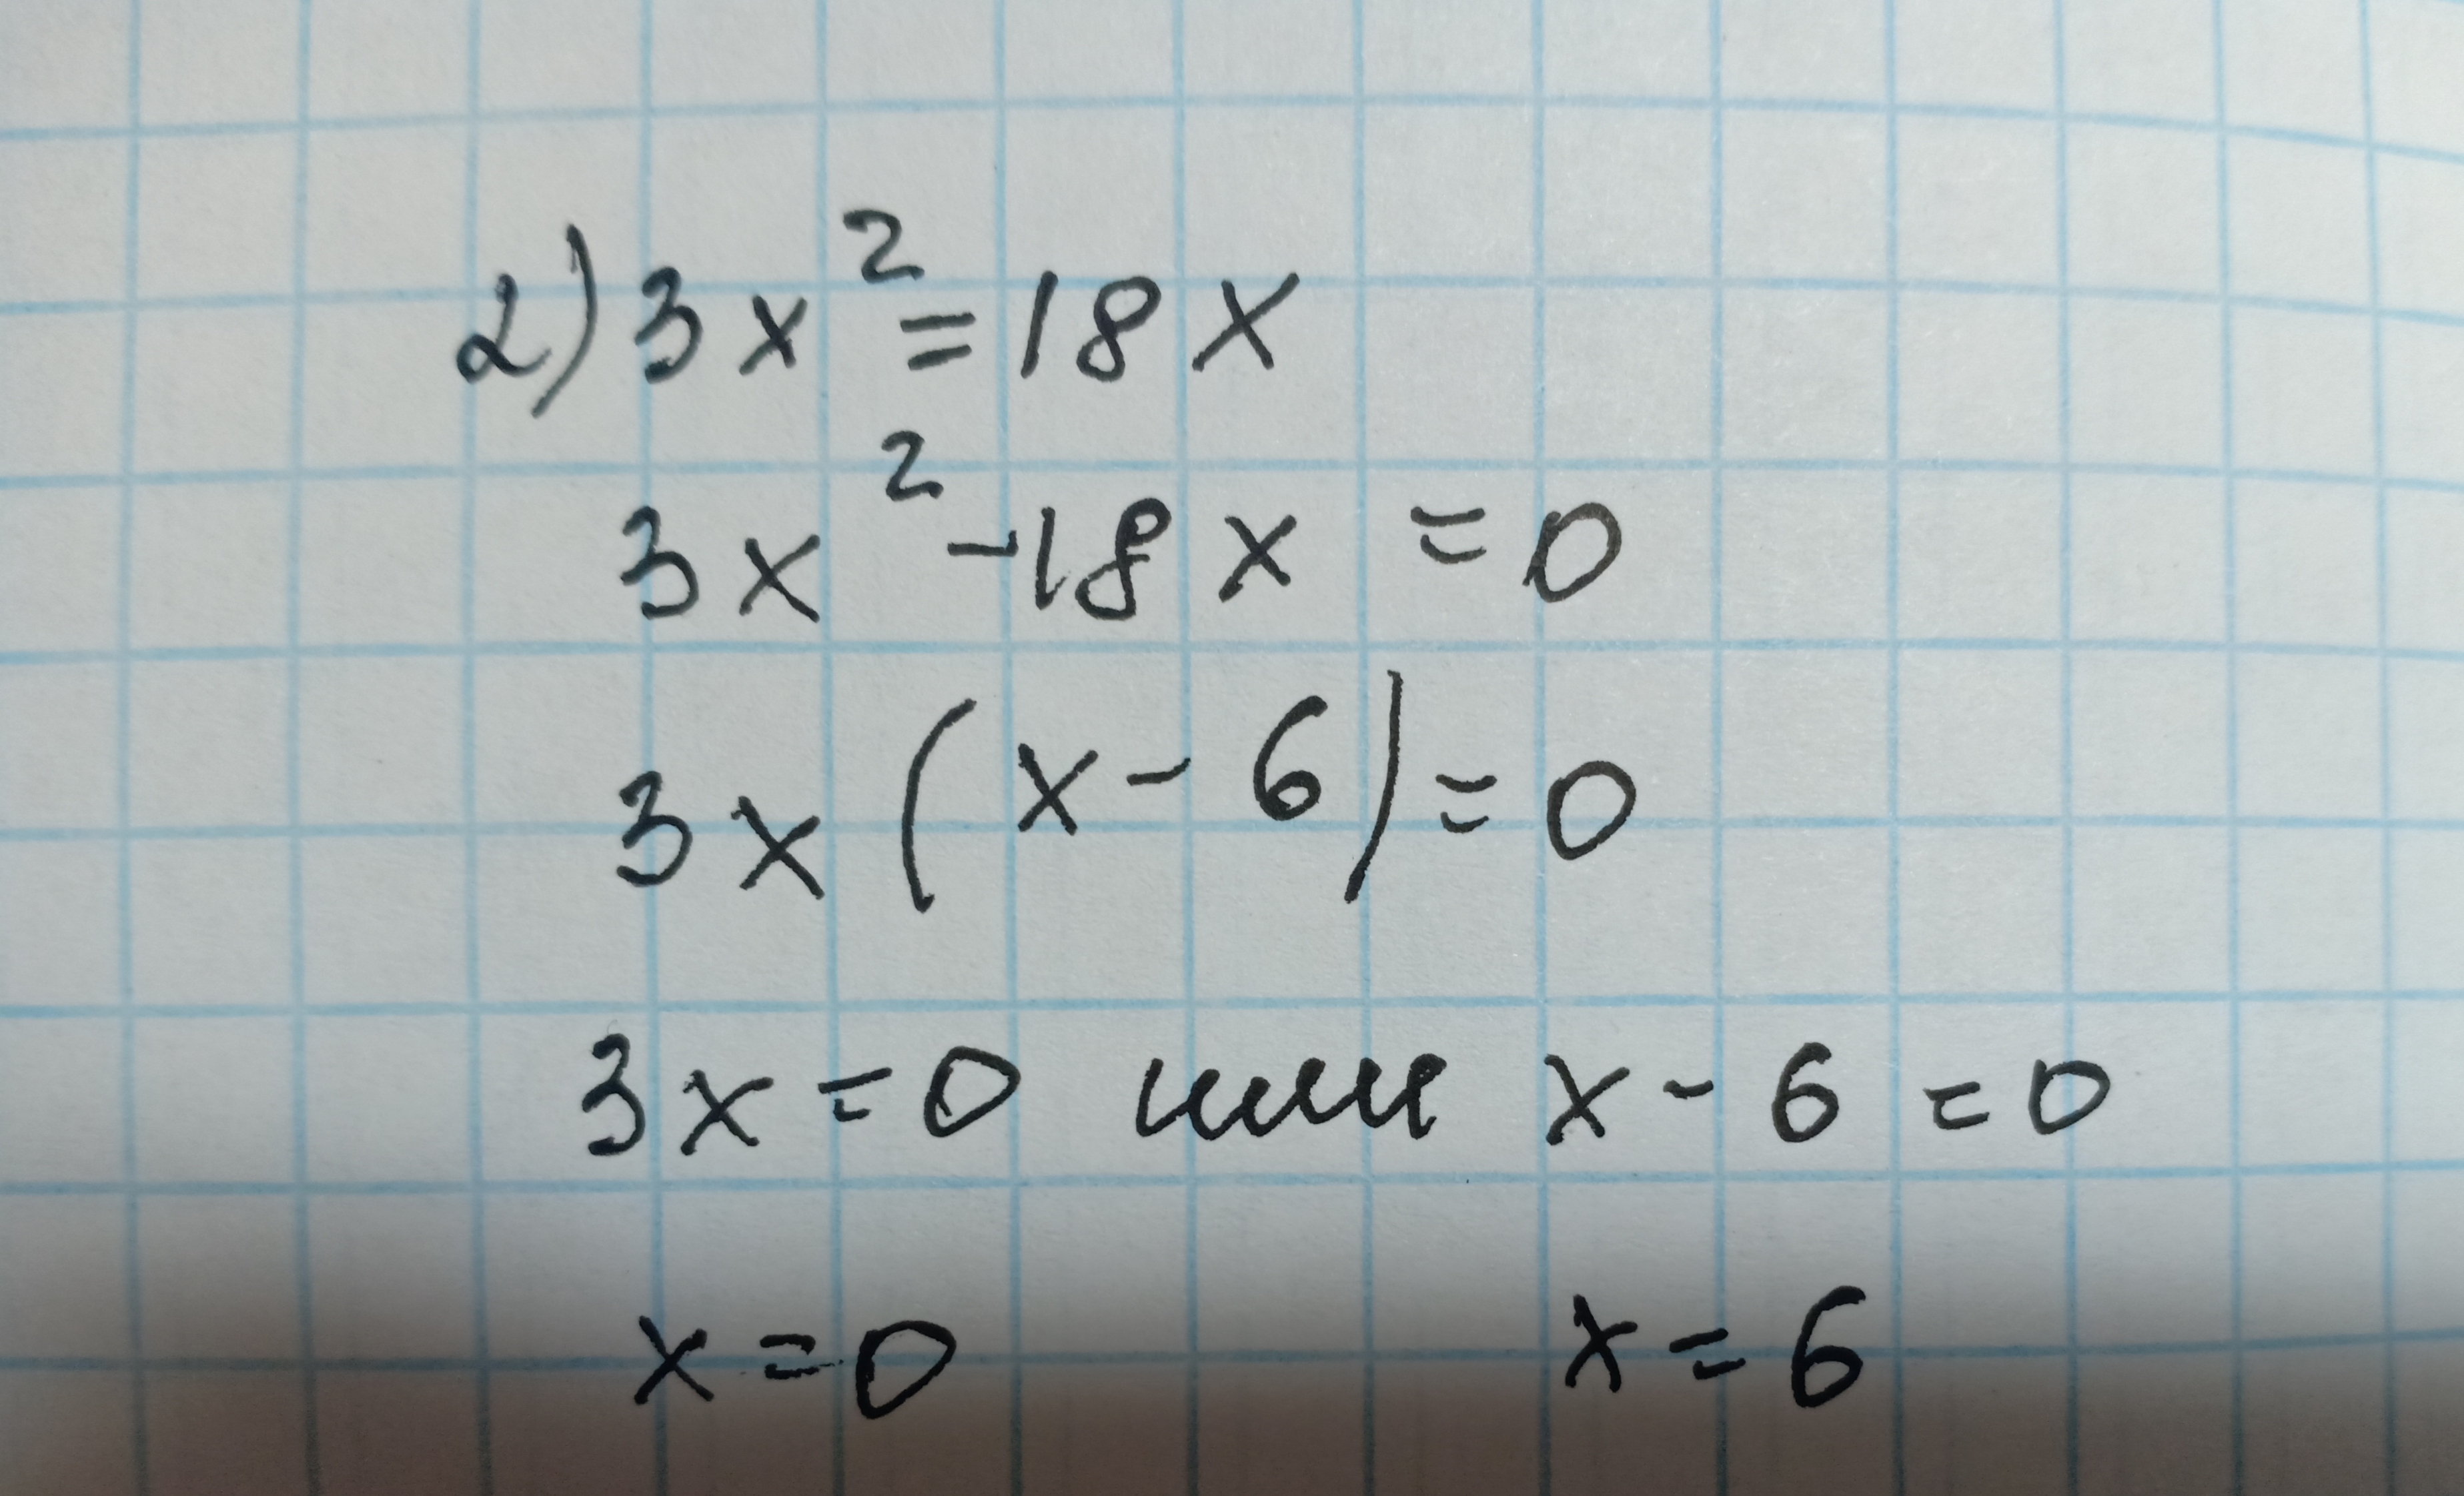 2) 3x² = 18x
3x² - 18x = 0
3x (x - 6) = 0
3x = 0 или x - 6 = 0
x = 0 x = 6